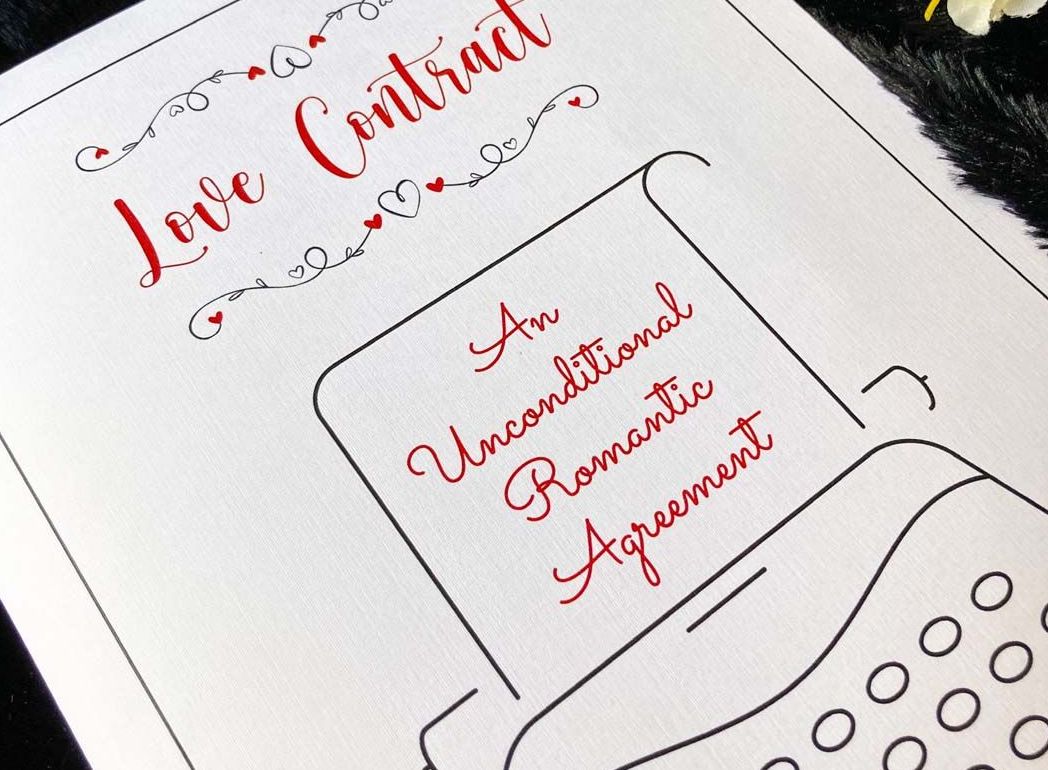 Love Contract
An
Unconditional
Romantic
Agreement